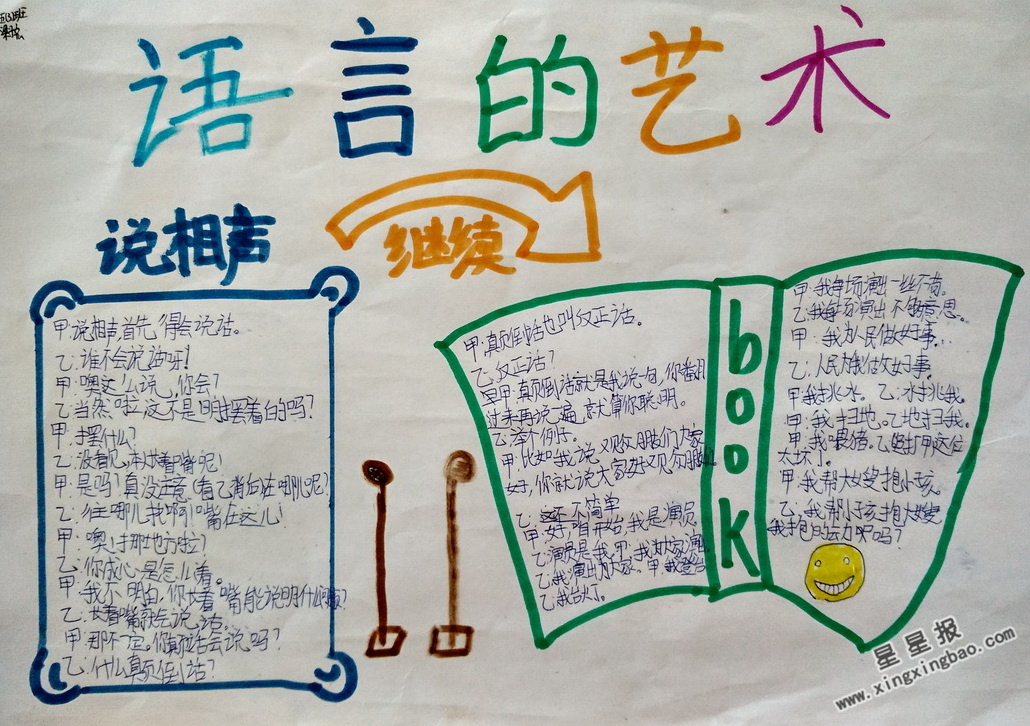 语言的艺术
说相声
继续
甲:说相声,首先,得会说话。
乙:谁不会说话呀!
甲:噢这么说,你会?
乙:当然啦,这不是明摆着的吗?
甲:摆什么?
乙:没看见,本长着嘴呢!
甲:是吗?真没注意(看乙背后)在哪儿呢?
乙:往哪儿找啊!嘴在这儿!
甲:噢!那地方啦?
乙:你成心是怎儿着。
甲:我不明白,你长着嘴能说明什么问题?
乙:长着嘴就会说话。
甲:那不一定。你颠倒话会说吗?
乙:什么颠倒话?
甲:颠倒话也叫反正话。
乙:反正话?
甲:颠倒话就是我说一句,你翻
过来再说一遍,就算你聪明。
乙:举个例子。
甲:比如我说观众朋友们大家
好,你就说大家好观众朋友
乙:这还不简单
甲:好,咱开始,我是演员
乙:演员是我。甲:我为大家演出
乙:我演出为大家、甲:我登台
乙:我台灯。
book
甲:我每场演出一丝不苟。
乙:我每场演出不够意思。
甲:我为人民做好事。
乙:人民为我做好事。
甲:我挑水。乙:水挑我。
甲:我扫地。乙:地扫我。
甲:我喂猪。乙:
太坏了。
甲:我帮大嫂抱小孩。
乙:我帮小孩抱大嫂
我抱的动吗?
星星报
www.xingxingbao.com